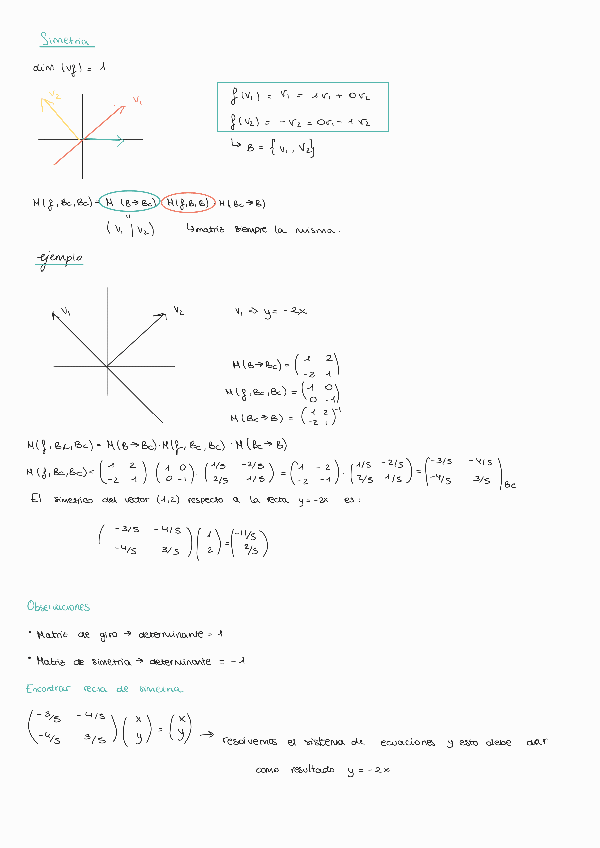 Simetría
dim (Vf) = 1
v₂ v₁
f(v₁) = v₁ = 1v₁ + 0v₂
f(v₂) = -v₂ = 0v₁ - 1v₂
↳ B = {v₁, v₂}
M(f, Bc, Bc) = M(B→Bc) M(f,B,B) M(Bc→B)
"
(v₁ | v₂) ↳ matriz siempre la misma.
ejemplo
v₁ v₂ v₁ => y = -2x
M(B→Bc) = (1 2; -2 1)
M(f, Bc, Bc) = (1 0; 0 -1)
M(Bc→B) = (1 2; -2 1)⁻¹
M(f, Bc, Bc) = M(B→Bc) · M(f, Bc, Bc) · M(Bc→B)
M(f, Bc, Bc) = (1 2; -2 1) (1 0; 0 -1) (1/5 -2/5; 2/5 1/5) = (1 -2; -2 -1) · (1/5 -2/5; 2/5 1/5) = (-3/5 -4/5; -4/5 3/5) Bc
El simétrico del vector (1,2) respecto a la recta y=-2x es:
(-3/5 -4/5; -4/5 3/5) (1; 2) = (-11/5; 2/5)
Observaciones
· Matriz de giro → determinante = 1
· Matriz de simetría → determinante = -1
Encontrar recta de simetría
(-3/5 -4/5; -4/5 3/5) (x; y) = (x; y) → resolvemos el sistema de ecuaciones y esto debe dar
como resultado y = -2x